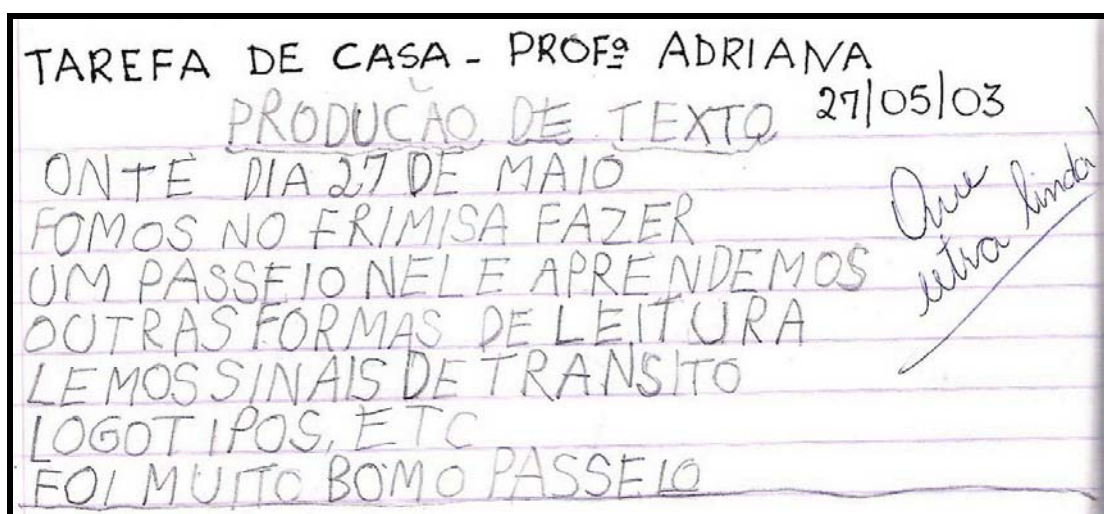 TAREFA DE CASA - PROFª ADRIANA
27/05/03
PRODUCÃO DE TEXTO
ONTE DIA 27 DE MAIO
FOMOS NO FRIMISA FAZER
UM PASSEIO NELE APRENDEMOS
OUTRAS FORMAS DE LEITURA
LEMOS SINAIS DE TRANSITO
LOGOTIPOS, ETC
FOI MUITO BOM O PASSEIO
Que
letra linda